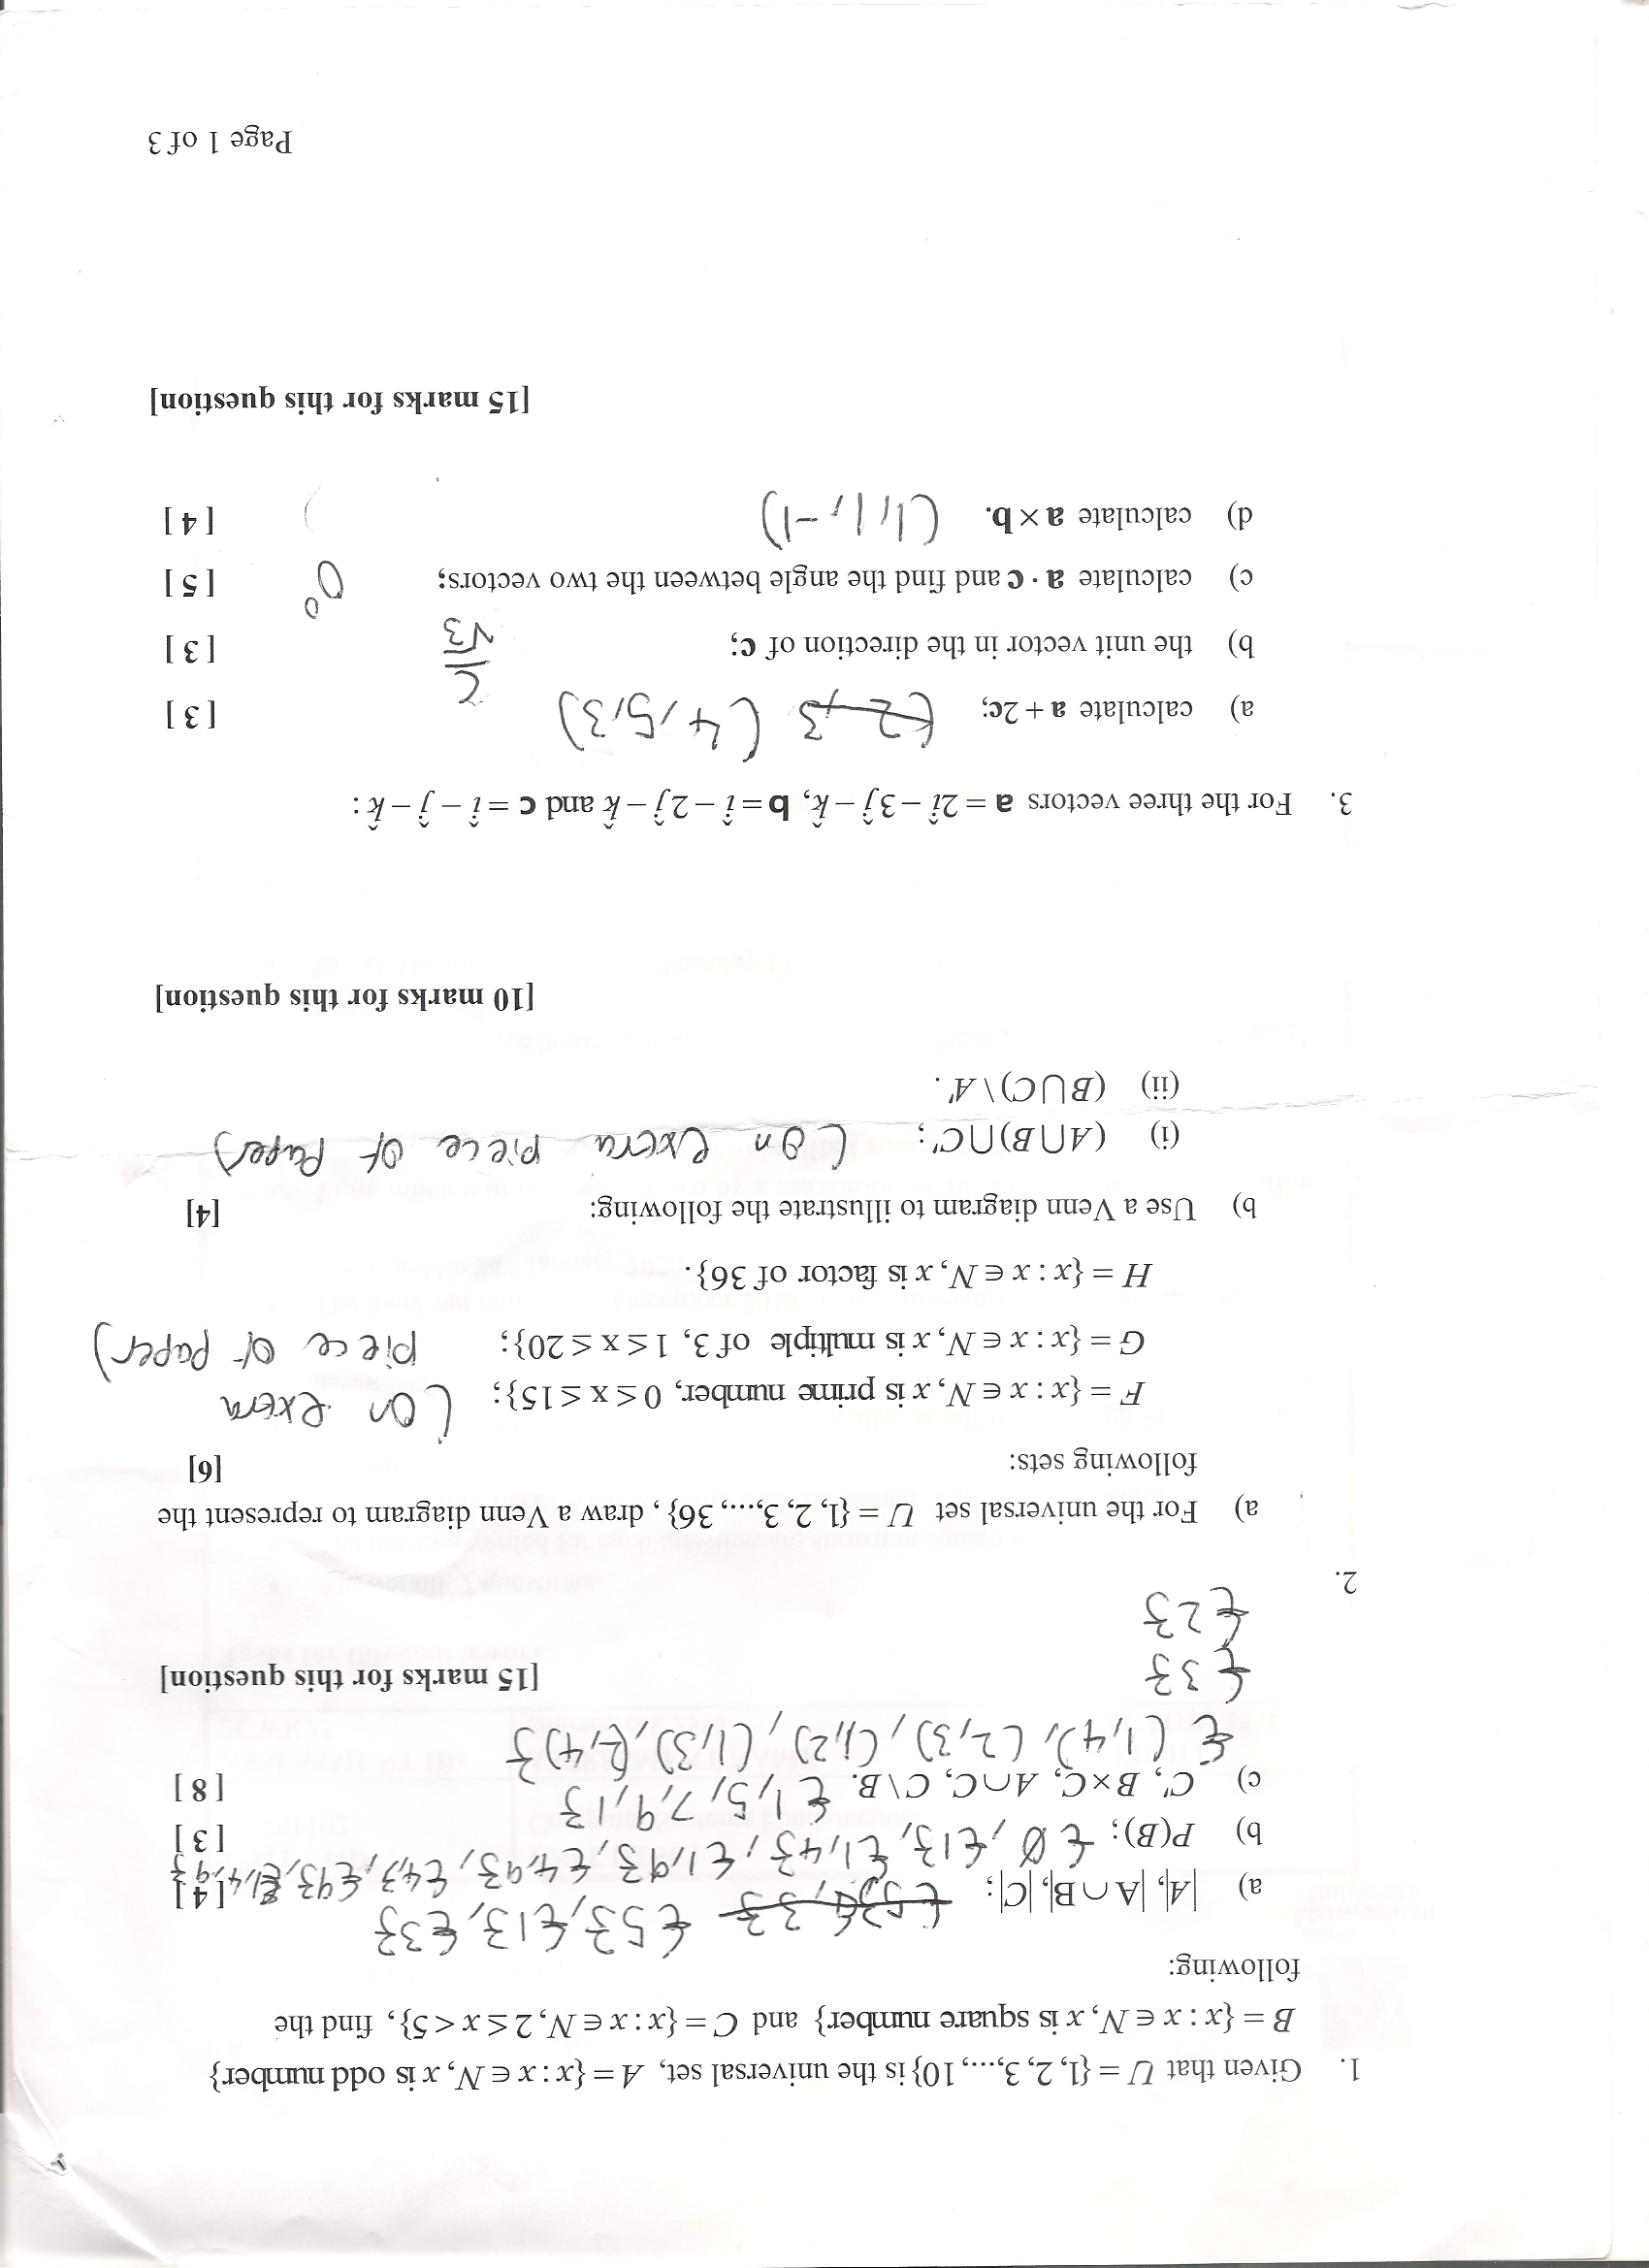 1. Given that U = {1, 2, 3,..., 10} is the universal set, A = {x : x ∈ N, x is odd number}
B = {x : x ∈ N, x is square number} and C = {x : x ∈ N, 2 ≤ x < 5}, find the
following:
{5}, {1}, {3}
a) |A|, |A ∩ B|, |C|; [4]
b) P(B); {∅, {1}, {1,4}, {1,9}, {4,9}, {4}, {9}, {1,4,9} [3]
c) C', B × C, A ∩ C, C \ B. {1, 5, 7, 9, 1} [8]
{(1,4), (2,3), (1,2), (1,3), (2,4)}
{3} [15 marks for this question]
{2}
2.
a) For the universal set U = {1, 2, 3,..., 36}, draw a Venn diagram to represent the
following sets: [6]
F = {x : x ∈ N, x is prime number, 0 ≤ x ≤ 15}; (On extra
G = {x : x ∈ N, x is multiple of 3, 1 ≤ x ≤ 20}; piece of paper)
H = {x : x ∈ N, x is factor of 36}.
b) Use a Venn diagram to illustrate the following: [4]
(i) (A ⋂ B) ⋂ C'; (On extra piece of paper)
(ii) (B ⋃ C) \ A'.
[10 marks for this question]
3. For the three vectors a = 2î − 3ĵ − k̂, b = î − 2ĵ − k̂ and c = î − ĵ − k̂ :
a) calculate a + 2c; (4, 5, 3) [3]
b) the unit vector in the direction of c; c/√3 [3]
c) calculate a · c and find the angle between the two vectors; 0° [5]
d) calculate a × b. (1, 1, -1) [4]
[15 marks for this question]
Page 1 of 3